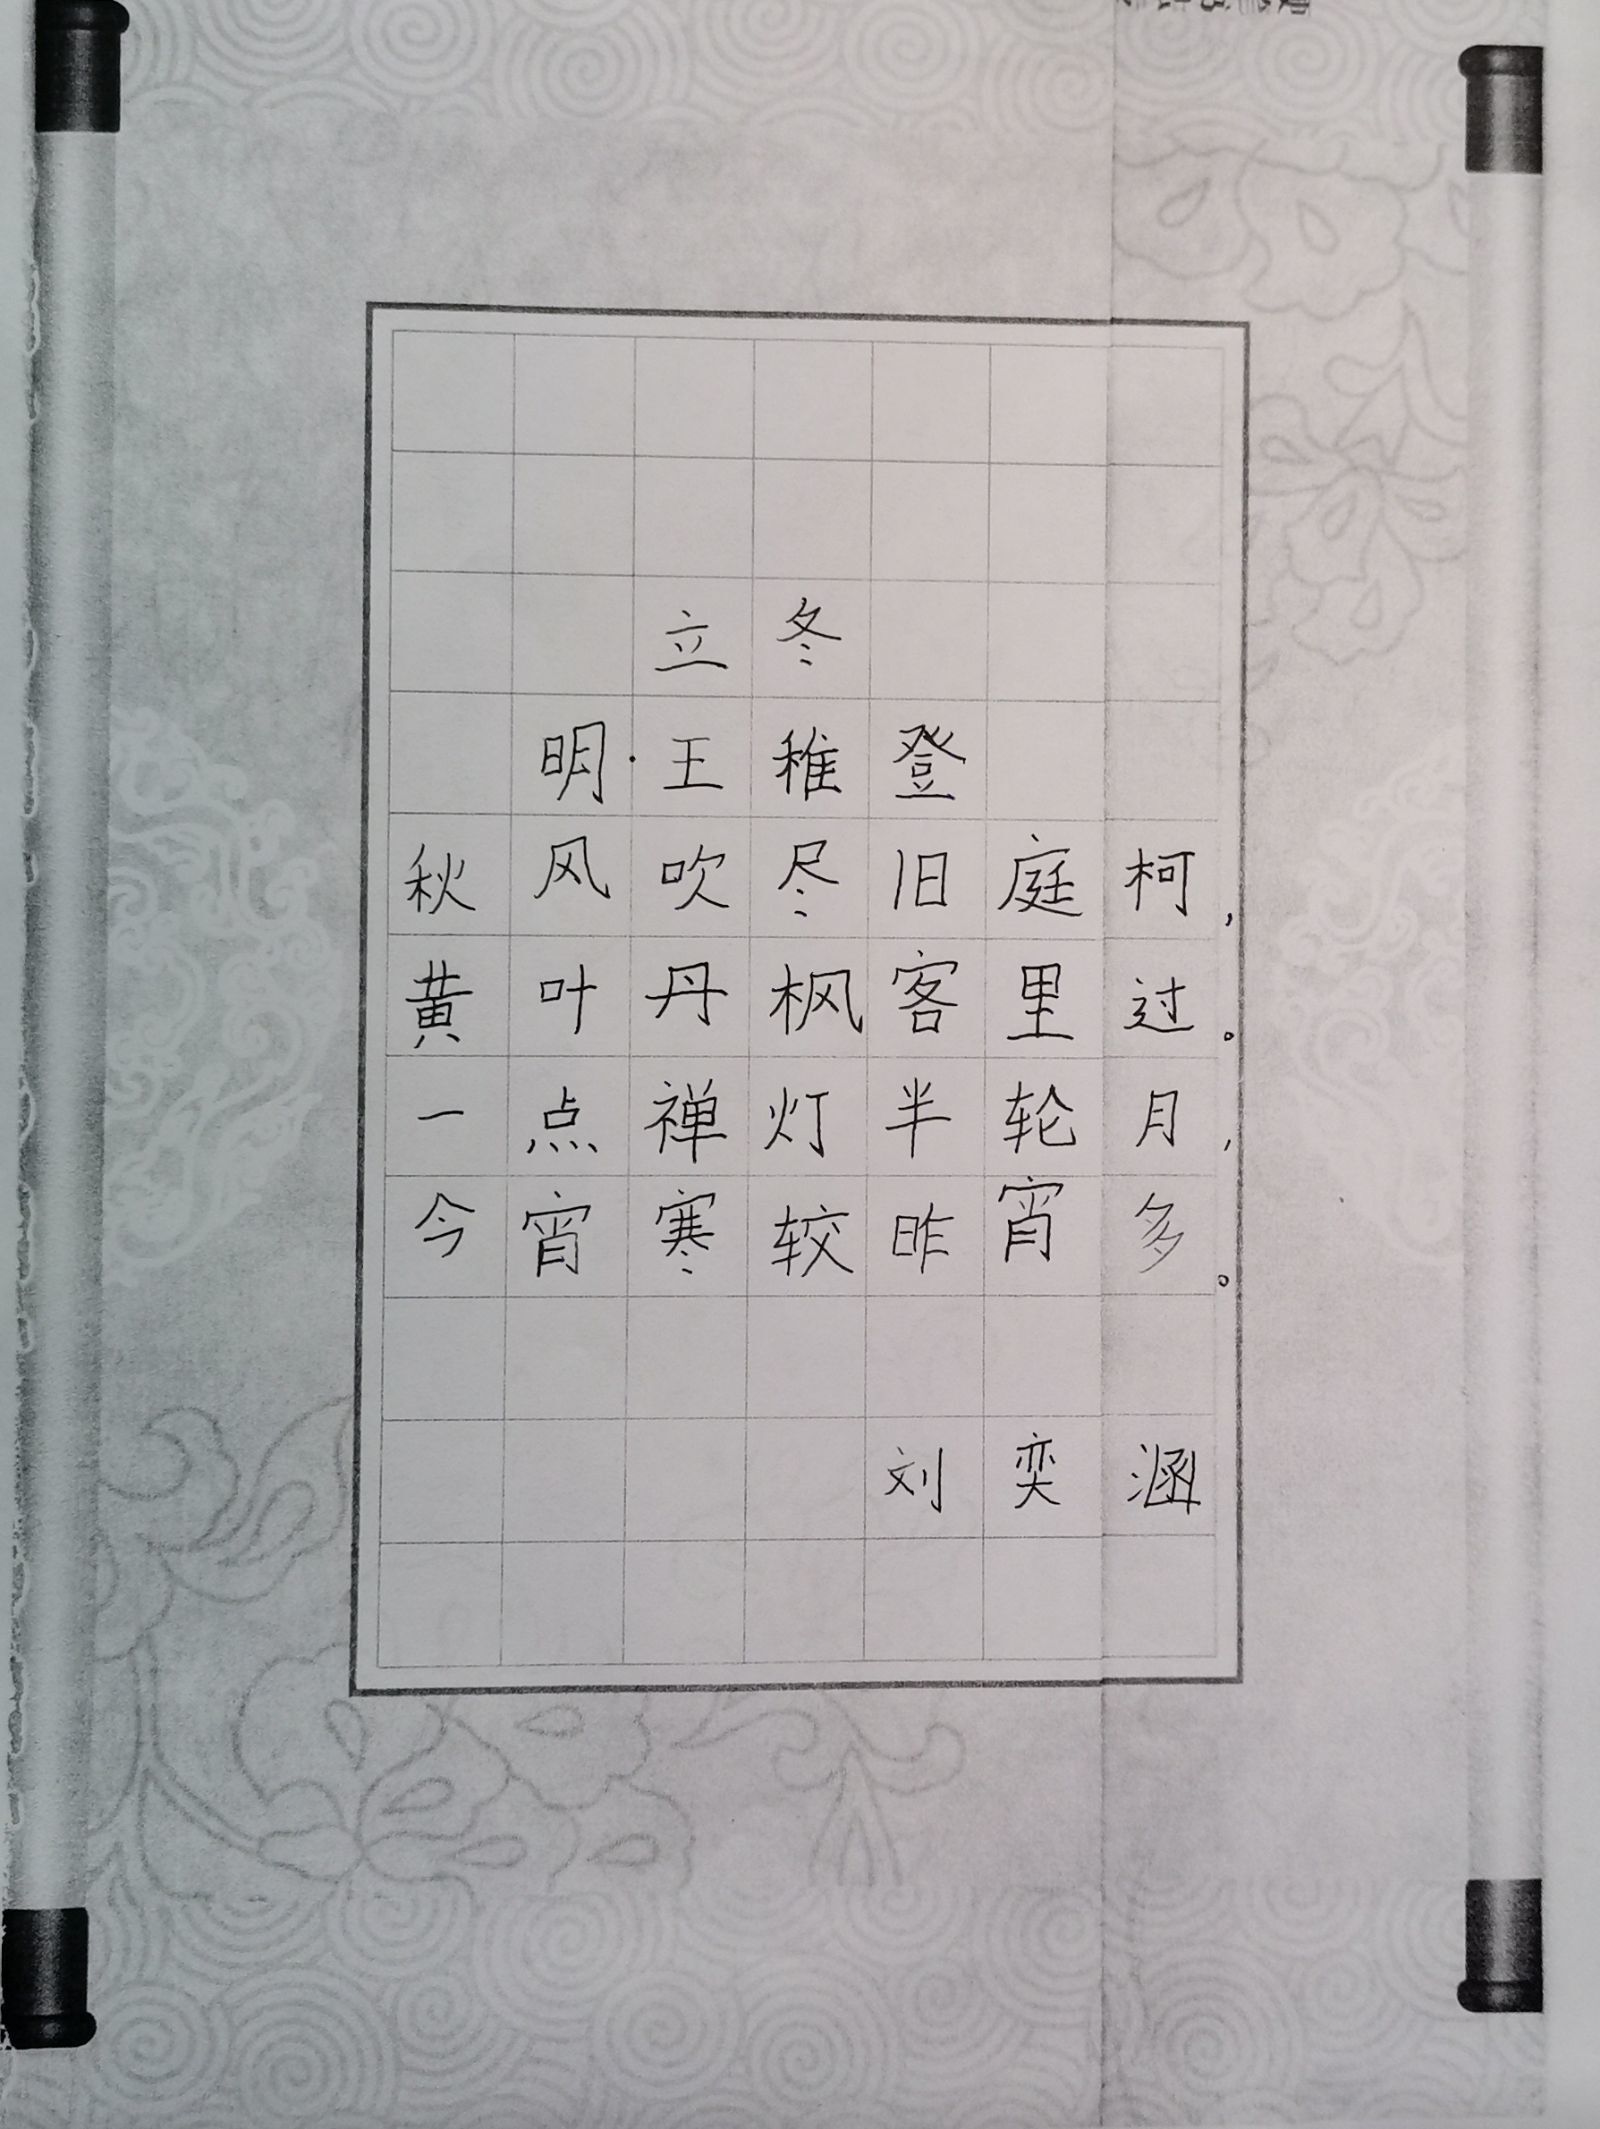 立冬
明·王稚登
秋风吹尽旧庭柯，
黄叶丹枫客里过。
一点禅灯半轮月，
今宵寒较昨宵多。
刘奕涵